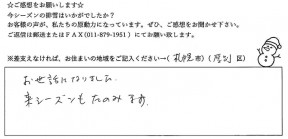 ☆ご感想をお願いします☆
今シーズンの排雪はいかがでしたか?
お客様の声が、私たちの原動力になっています。ぜひ、ご感想をお聞かせ下さい。
ご返信は郵送またはFAX(011-879-1951)にてお願い致します。
※差支えなければ、お住まいの地域をご記入ください→(札幌市)(厚別区)
お世話になりました。
来シーズンもたのみます。